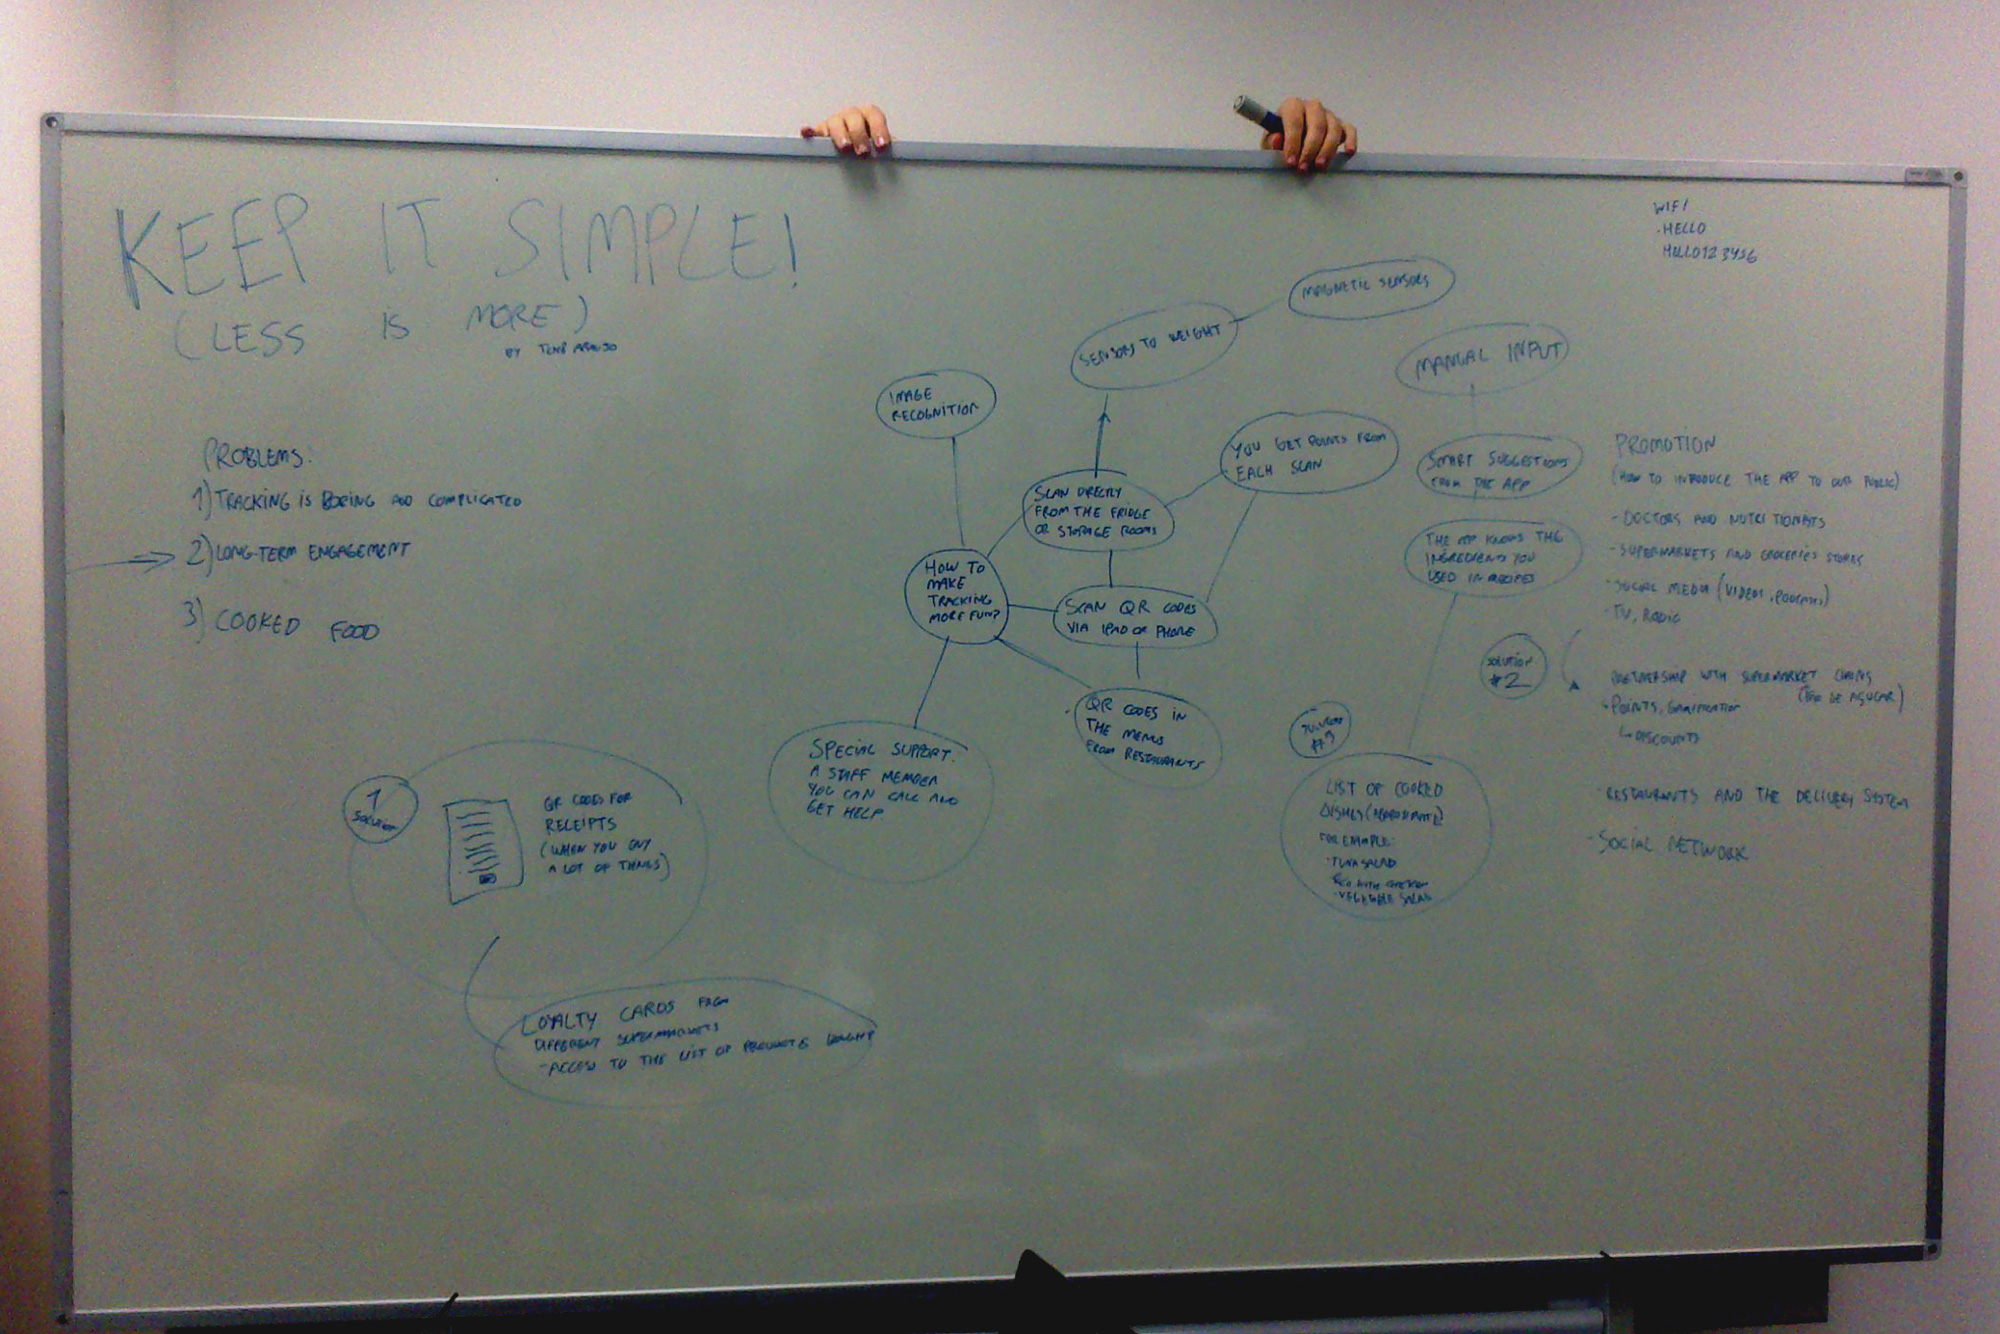 KEEP IT SIMPLE!
(LESS IS MORE)
BY
WIFI
.HELLO
PROBLEMS:
1) TRACKING IS BORING AND COMPLICATED
2) LONG-TERM ENGAGEMENT
3) COOKED FOOD
MAGNETIC SENSORS
SENSORS TO WEIGHT
IMAGE
RECOGNITION
YOU GET POINTS FROM
EACH SCAN
SCAN DIRECTLY
FROM THE FRIDGE
OR STORAGE ROOMS
HOW TO
MAKE
TRACKING
MORE FUN?
SCAN QR CODES
VIA IPAD OR PHONE
QR CODES IN
THE MENUS
FROM RESTAURANTS
SPECIAL SUPPORT:
A STAFF MEMBER
YOU CAN CALL AND
GET HELP
1
SOLUTION
QR CODES FOR
RECEIPTS
(WHEN YOU BUY
A LOT OF THINGS)
LOYALTY CARDS FROM
DIFFERENT SUPERMARKETS
-ACCESS TO THE LIST OF PRODUCTS BOUGHT
MANUAL INPUT
SMART SUGGESTIONS
FROM THE APP
THE APP KNOWS THE
INGREDIENTS YOU
USED IN RECIPES
SOLUTION
#3
LIST OF COOKED
DISHES (APPROXIMATE)
FOR EXAMPLE:
-TUNA SALAD
WITH CHICKEN
-VEGETABLE SALAD
PROMOTION
(HOW TO INTRODUCE THE APP TO OUR PUBLIC)
- DOCTORS AND NUTRITIONISTS
- SUPERMARKETS AND GROCERIES STORES
- SOCIAL MEDIA (VIDEOS, PODCASTS)
- TV, RADIO
SOLUTION
#2
PARTNERSHIP WITH SUPERMARKET CHAINS
(PÃO DE AÇUCAR)
POINTS, GAMIFICATION
DISCOUNTS
- RESTAURANTS AND THE DELIVERY SYSTEM
- SOCIAL NETWORK